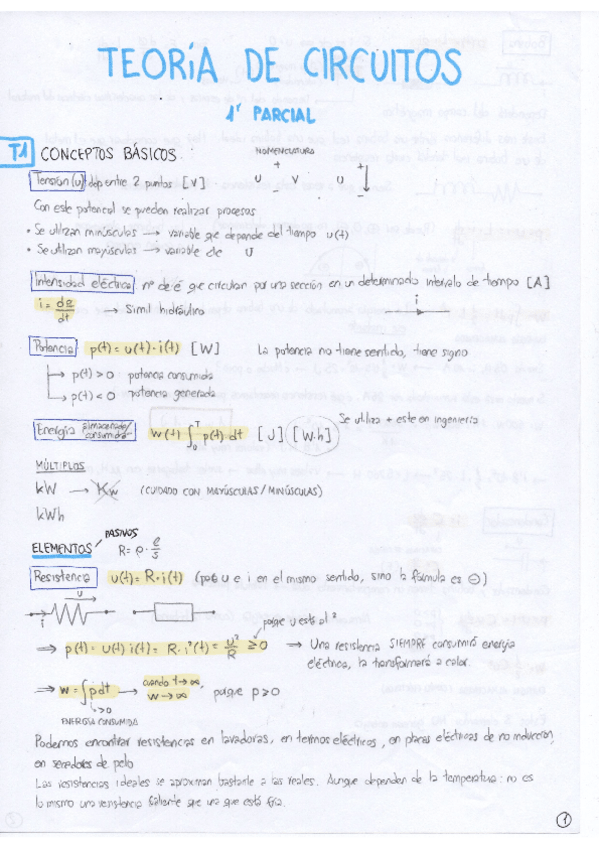 TEORÍA DE CIRCUITOS
1er PARCIAL
T1 CONCEPTOS BÁSICOS
NOMENCLATURA
Tensión (u) ddp entre 2 puntos [V]
+ +
U V U
- -
Con este potencial se pueden realizar procesos
• Se utilizan minúsculas → variable que depende del tiempo u(t)
• Se utilizan mayúsculas → variable de U
Intensidad eléctrica nº de e⁻ que circulan por una sección en un determinado intervalo de tiempo [A]
i = dq/dt → Simil hidráulico
i
Potencia p(t) = u(t)·i(t) [W] La potencia no tiene sentido, tiene signo
→ p(t) > 0 potencia consumida
→ p(t) < 0 potencia generada
Energía almacenada/consumida w(t) ∫₀ᵀ p(t) dt [J] [W.h] Se utiliza + este en ingeniería
MÚLTIPLOS
kW → Kw (CUIDADO CON MAYÚSCULAS/MINÚSCULAS)
kWh
ELEMENTOS PASIVOS R = ρ · ℓ/s
Resistencia u(t) = R·i(t) (para u e i en el mismo sentido, sino la fórmula es ⊖)
u
i
porque u está al ²
⇒ p(t) = u(t) i(t) = R·i²(t) = u²/R ≥ 0 → Una resistencia SIEMPRE consumirá energía
eléctrica, la transformará a calor.
⇒ w = ∫p dt cuando t→∞, w→∞, porque p ≥ 0
↳ > 0
ENERGÍA CONSUMIDA
Podemos encontrar resistencias en lavadoras, en termos eléctricos, en placas eléctricas de no inducción,
en secadores de pelo
Las resistencias ideales se aproximan bastante a las reales. Aunque dependen de la temperatura: no es
lo mismo una resistencia caliente que una que está fría.
1